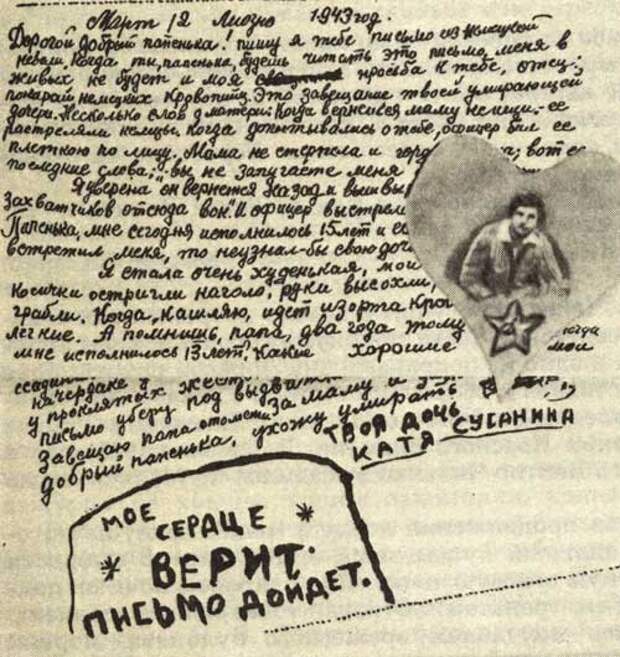 Март 12 Лиозно 1943 год.
Дорогой добрый папенька! пишу я тебе письмо из немецкой
неволи. Когда ты, папенька, будешь читать это письмо, меня в
живых не будет и моя просьба к тебе, отец:
покарай немецких кровопийц. Это завещание твоей умирающей
дочери. Несколько слов о матери. Когда вернешься маму не ищи. ее
растреляли немцы. Когда допытывались о тебе, офицер бил ее
плеткою по лицу. Мама не стерпела и вот ее
последние слова; „вы не запугаете меня
Я уверена он вернется назад и вышвы
захватчиков отсюда вон." И офицер выстрел
Папенька, мне сегодня исполнилось 15 лет и ес
встретил меня, то неузнал-бы свою доч
Я стала очень худенькая, мои
косички остригли наголо, руки высохли,
грабли. Когда, кашляю, идет изорта кро
легкие. А помнишь, папа, два года тому когда
мне исполнилось 13 лет. Какие хорошие мои
на чердаке
у проклятых
письмо уберу под
Завещаю папа отомсти за маму и
добрый папенька, ухожу умирать
ТВОЯ ДОЧЬ
КАТЯ СУСАНИНА
МОЕ
СЕРДЦЕ
ВЕРИТ.
ПИСЬМО ДОЙДЕТ.